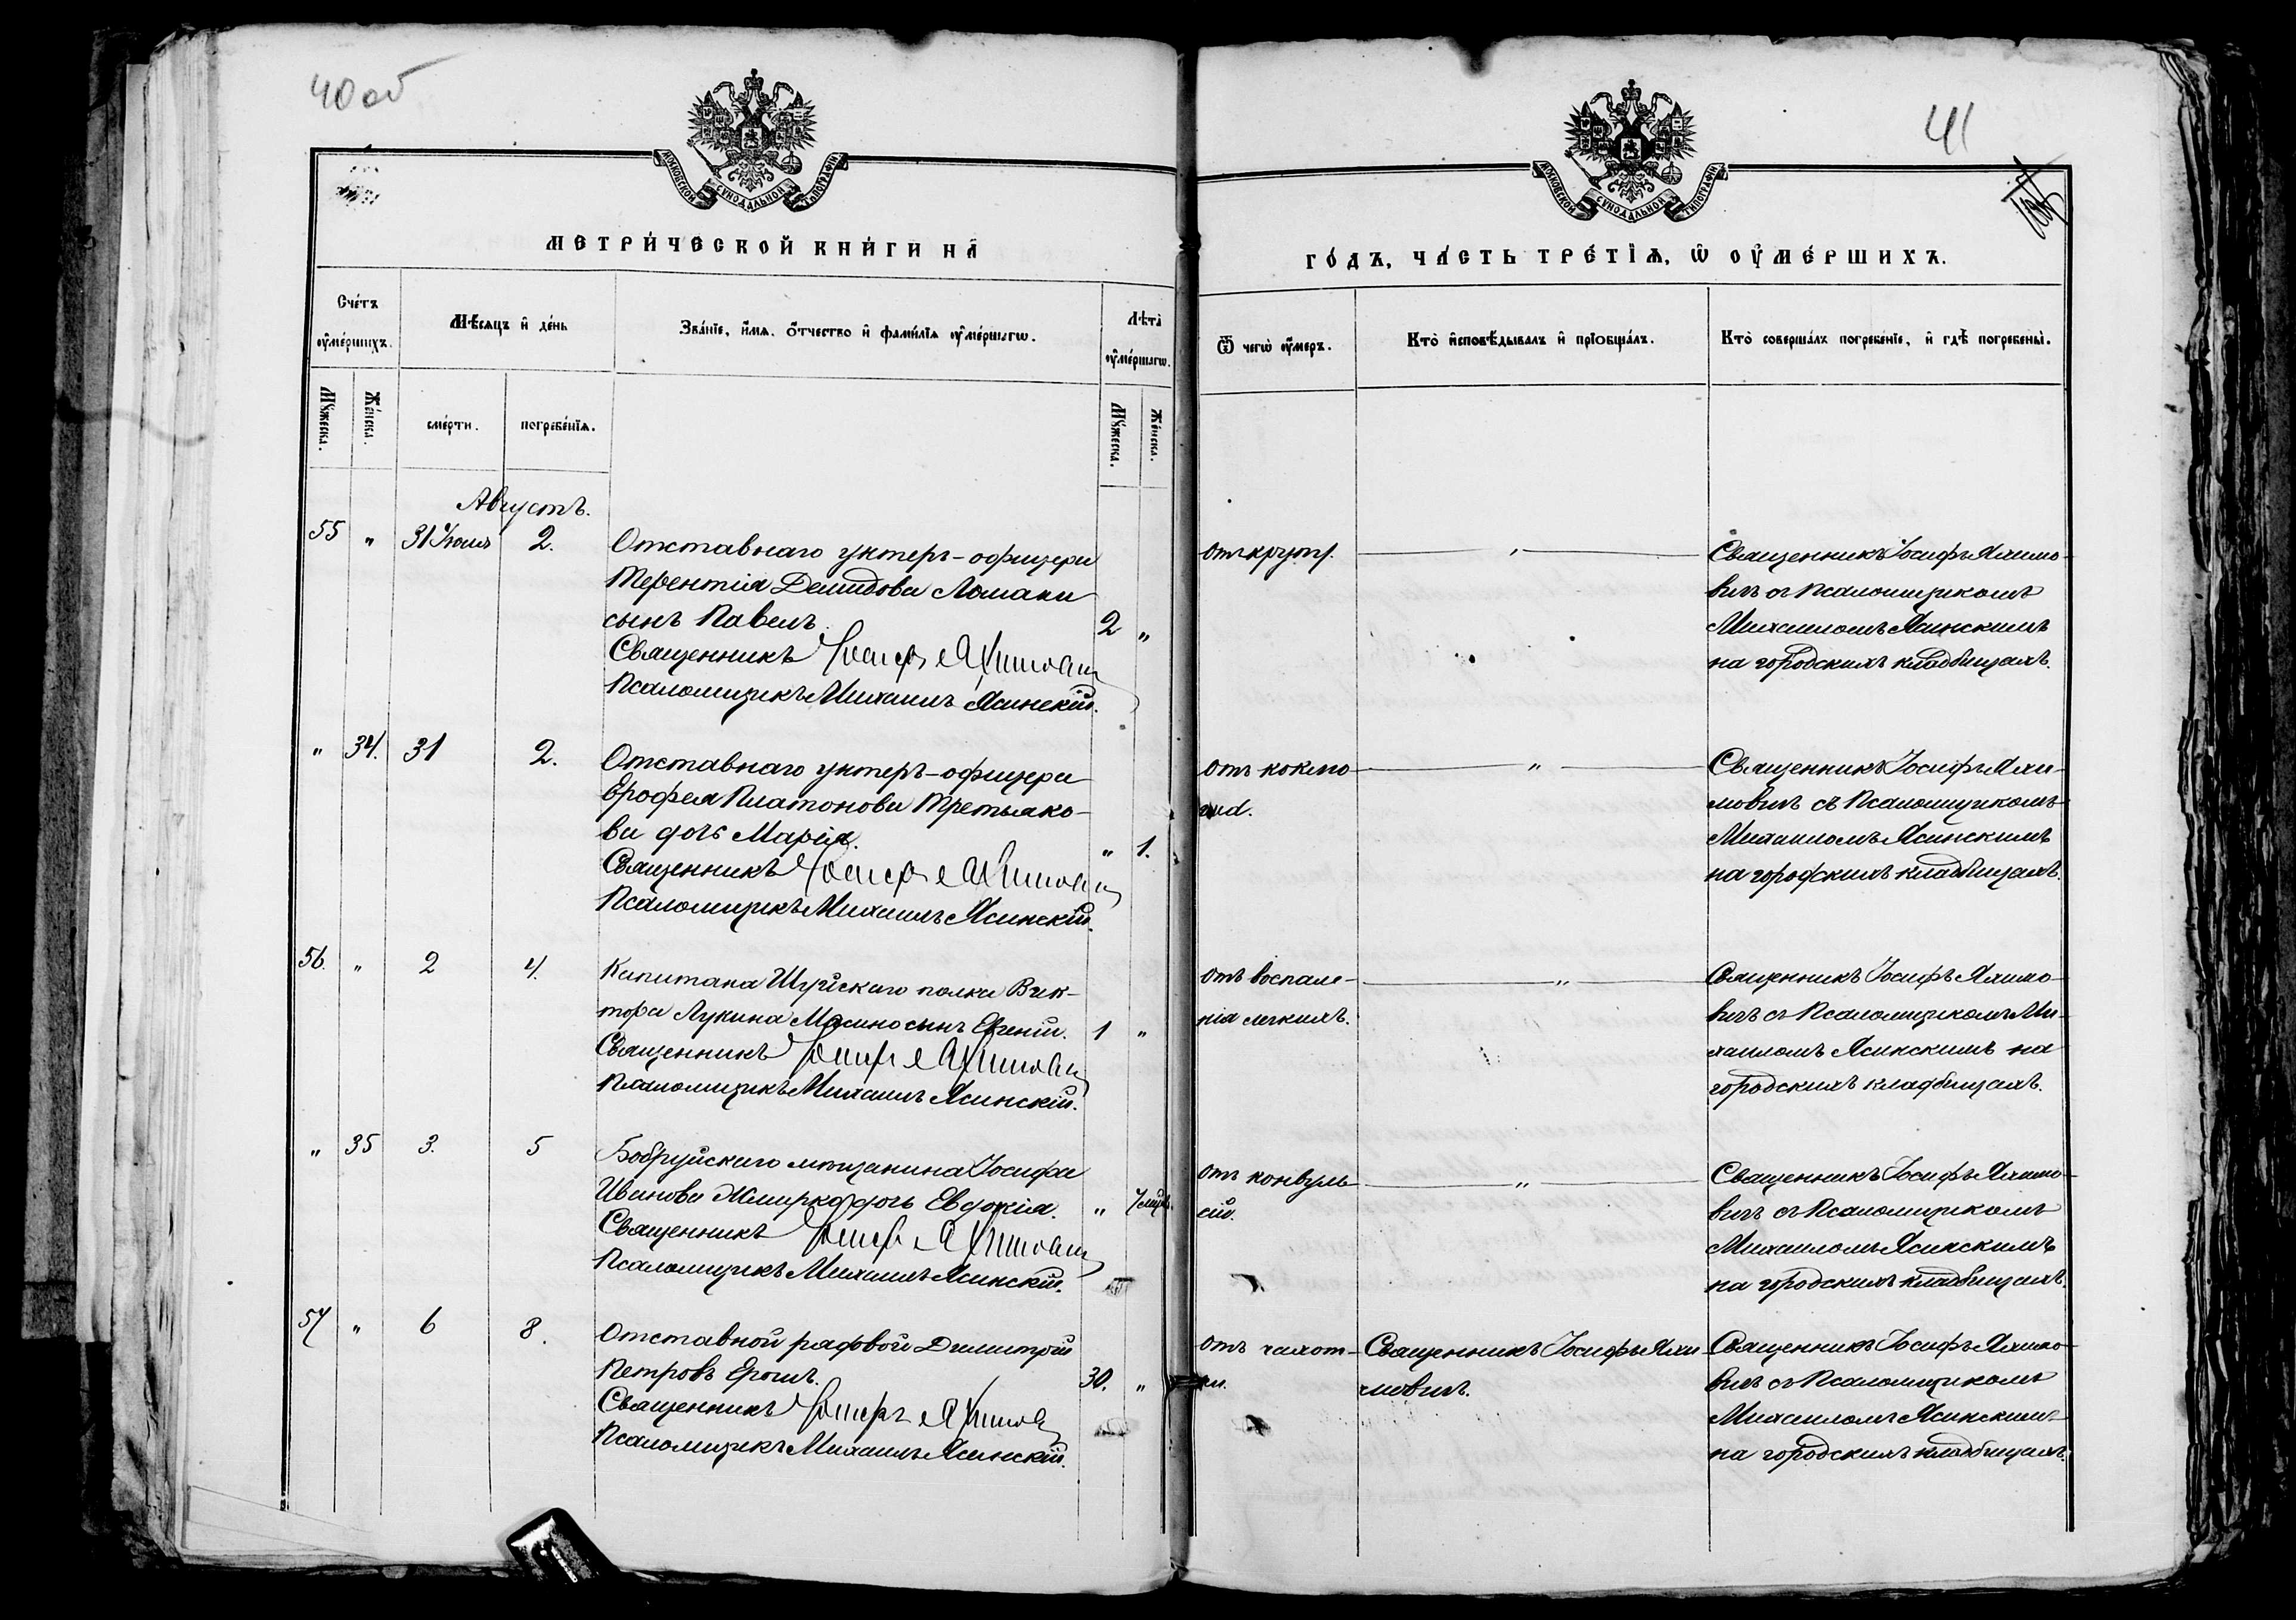 40 об
41
МОСКОВСКОЙ СѴНОДАЛЬНОЙ ТИПОГРАФІИ
МОСКОВСКОЙ СѴНОДАЛЬНОЙ ТИПОГРАФІИ
МЕТРИ́ЧЕСКОЙ КНИ́ГИ НА̀
ГО́ДЪ, ЧА́СТЬ ТРЕ́ТІѦ, Ѡ҆ ОУ҆МЕ́РШИХЪ.
Сче́тъ оу҆ме́ршихъ.
Мѣ́сяцъ и҆ де́нь
Зва́нїе, и҆́мѧ, ѻ҆́тчество и҆ фами́лїѧ оу҆ме́ршагѡ.
Лѣта̀ оу҆ме́ршагѡ.
Ѿ чегѡ̀ оу҆́меръ.
Кто̀ и҆сповѣ́дывалъ и҆ прїобща́лъ.
Кто̀ соверша́лъ погребе́нїе, и҆ гдѣ̀ погребены̀.
Мꙋ́жеска.
Же́нска.
сме́рти.
погребе́нїѧ.
Мꙋ́жеска.
Же́нска.
Августъ.
55 " 31 Іюля 2.
Отставнаго унтеръ-офицера
Терентія Демидова Ломаки
сынъ Павелъ. 2 "
Священникъ Іосифъ Яхимович
Псаломщикъ Михаилъ Ясинскій.
отъ крупу.
"
Священникъ Іосифъ Яхимо-
вичъ съ Псаломщикомъ
Михаиломъ Ясинскимъ
на городскихъ кладбищахъ.
" 34. 31 2.
Отставнаго унтеръ-офицера
Ерофея Платонова Третьяко-
ва дочь Марія. " 1.
Священникъ Іосифъ Яхимович
Псаломщикъ Михаилъ Ясинскій.
отъ коклю-
"
Священникъ Іосифъ Яхи-
мовичъ съ Псаломщикомъ
Михаиломъ Ясинскимъ
на городскихъ кладбищахъ.
56. " 2 4.
Капитана Шуйскаго полка Вик-
тора Лукина сынъ Евгеній. 1 "
Священникъ Іосифъ Яхимович
Псаломщикъ Михаилъ Ясинскій.
отъ воспале-
нія легкихъ.
"
Священникъ Іосифъ Яхимо-
вичъ съ Псаломщикомъ Ми-
хаиломъ Ясинскимъ на
городскихъ кладбищахъ.
" 35 3. 5
Бобруйскаго мѣщанина Іосифа
Иванова дочь Евдокія. " 7 мѣс.
Священникъ Іосифъ Яхимович
Псаломщикъ Михаилъ Ясинскій.
отъ конвуль-
сій.
"
Священникъ Іосифъ Яхимо-
вичъ съ Псаломщикомъ
Михаиломъ Ясинскимъ
на городскихъ кладбищахъ.
57 " 6 8.
Отставной рядовой Димитрій
Петровъ Ерошъ. 30. "
Священникъ Іосифъ Яхимович
Псаломщикъ Михаилъ Ясинскій.
отъ чахот-
ки.
Священникъ Іосифъ Яхи-
мовичъ.
Священникъ Іосифъ Яхимо-
вичъ съ Псаломщикомъ
Михаиломъ Ясинскимъ
на городскихъ кладбищахъ.